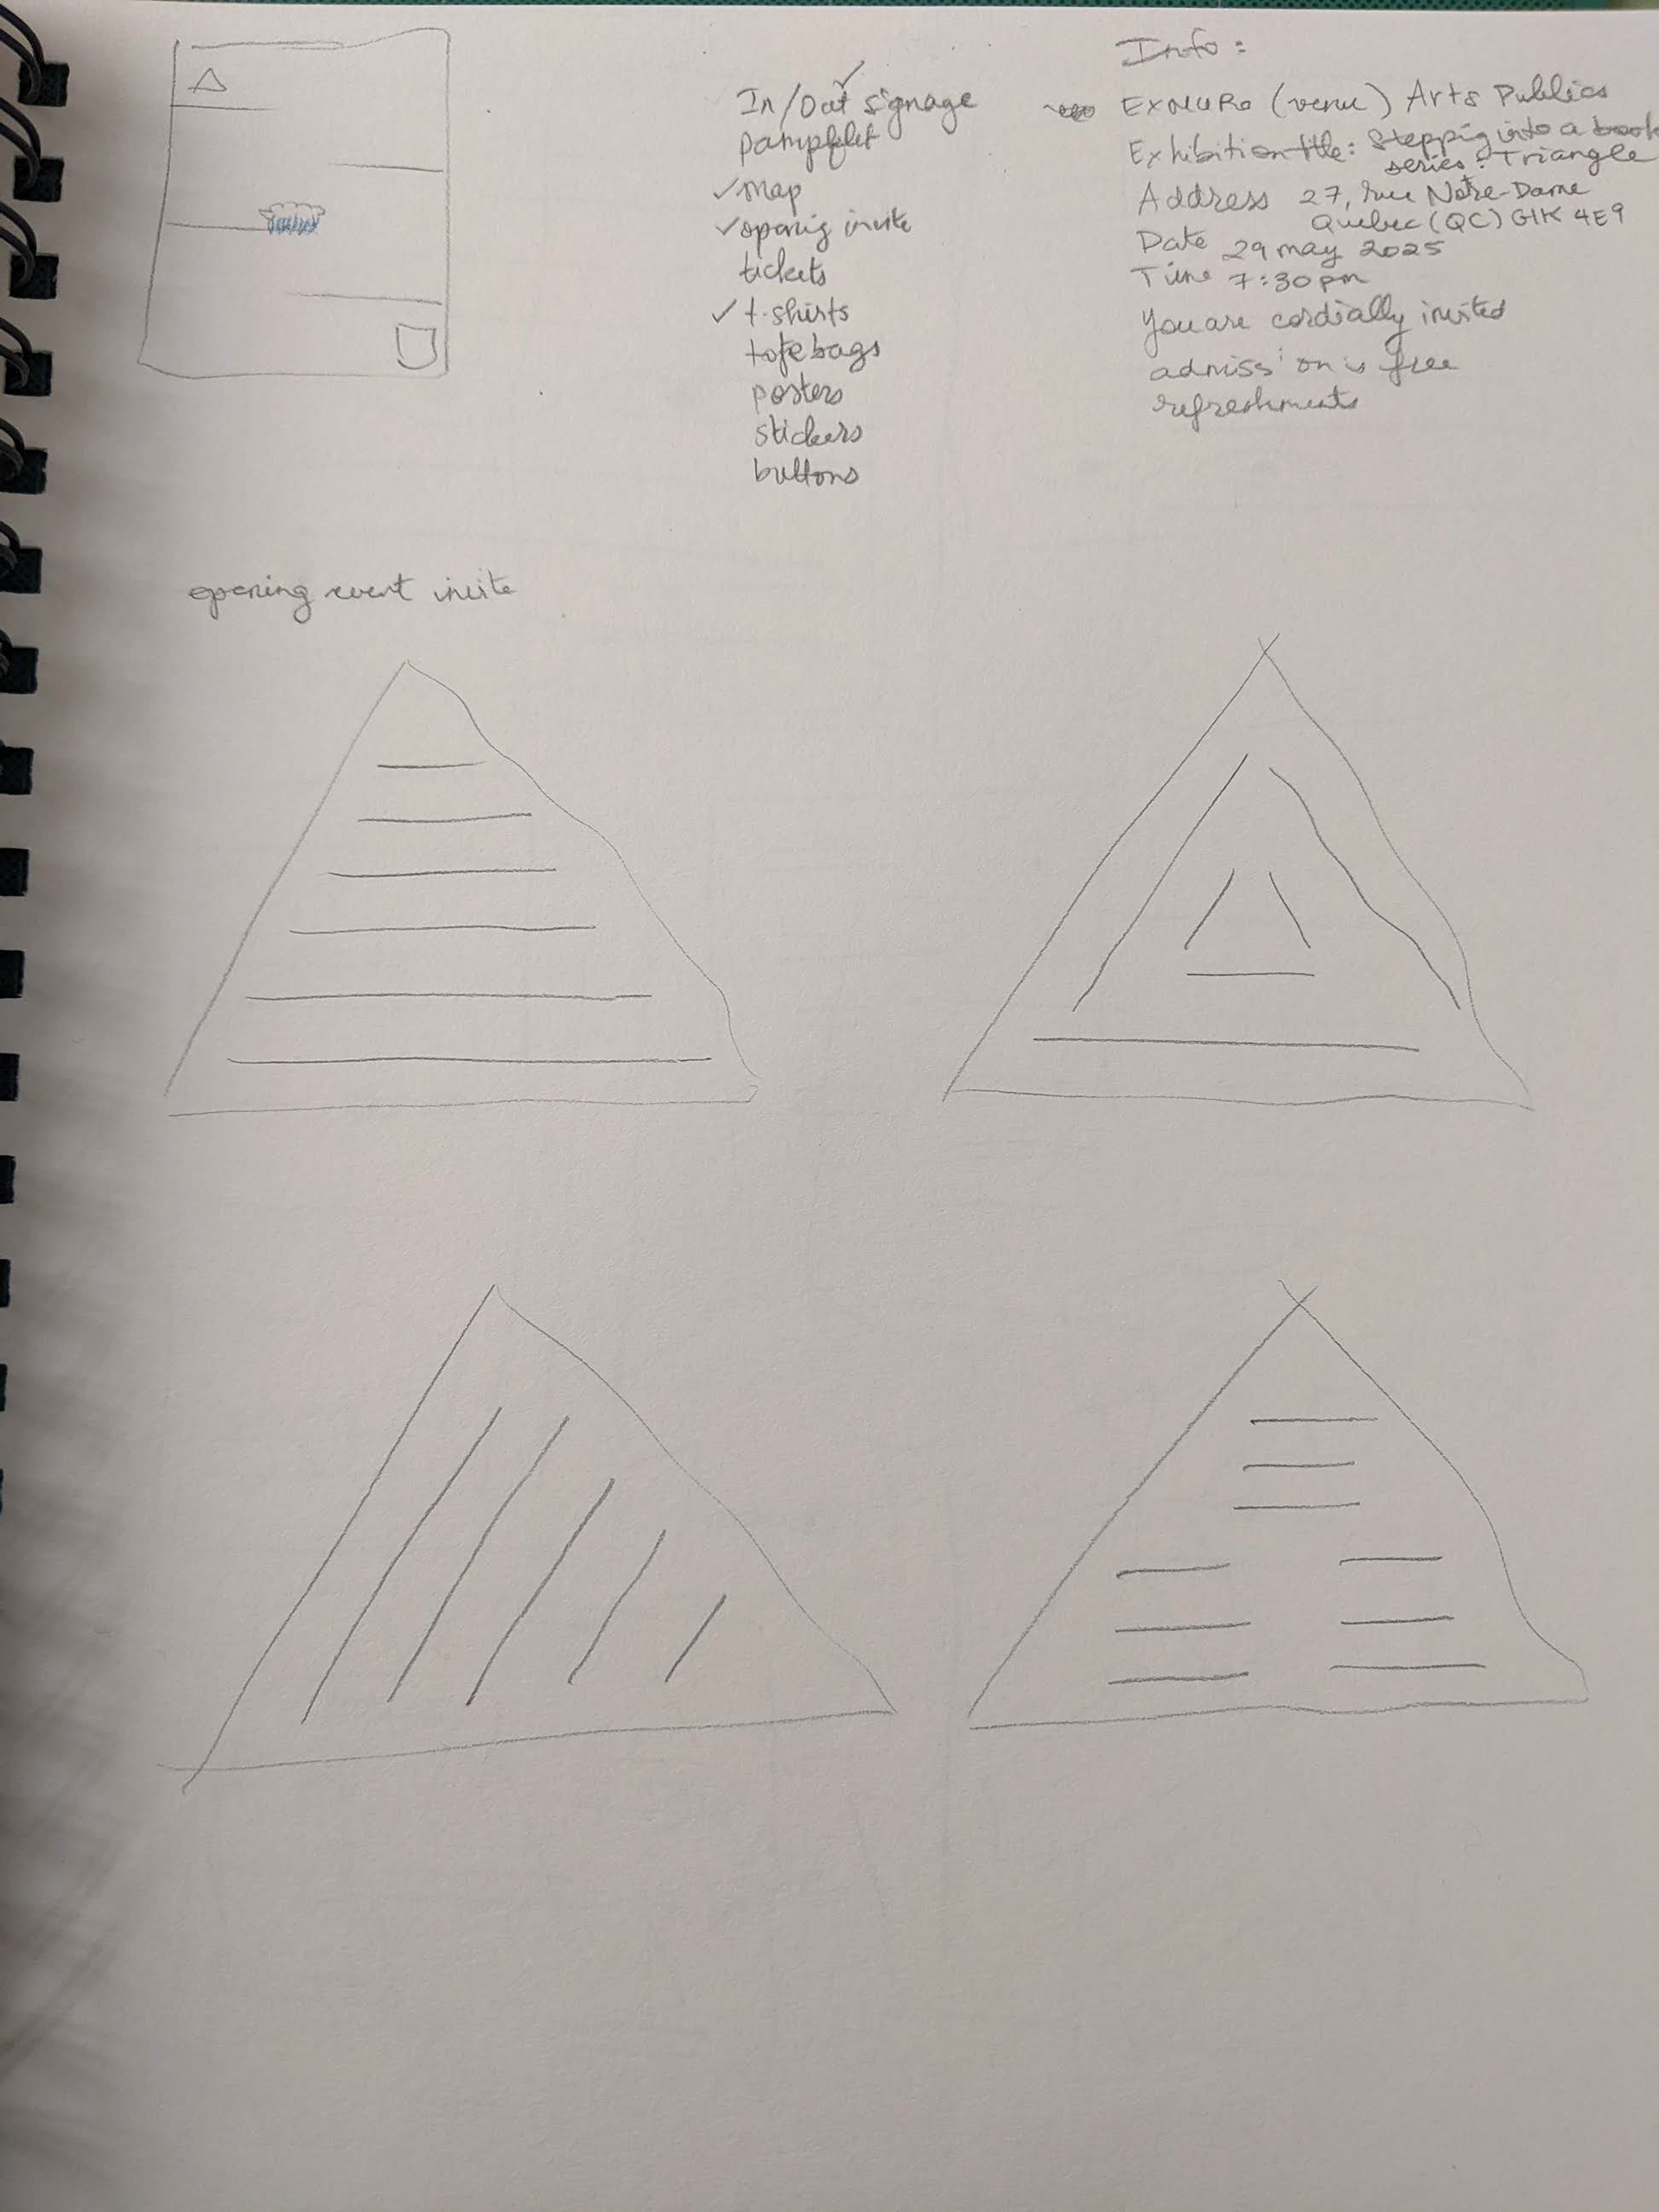 In/Out signage
pampflet
map
opening invite
tickets
t-shirts
tote bags
posters
stickers
buttons
Info:
EXMURO (venue) Arts Publics
Exhibition title: Stepping into a book
series: Triangle
Address 27, rue Notre-Dame
Quebec (QC) G1K 4E9
Date 29 may 2025
Time 7:30pm
You are cordially invited
admission is free
refreshments
opening event invite